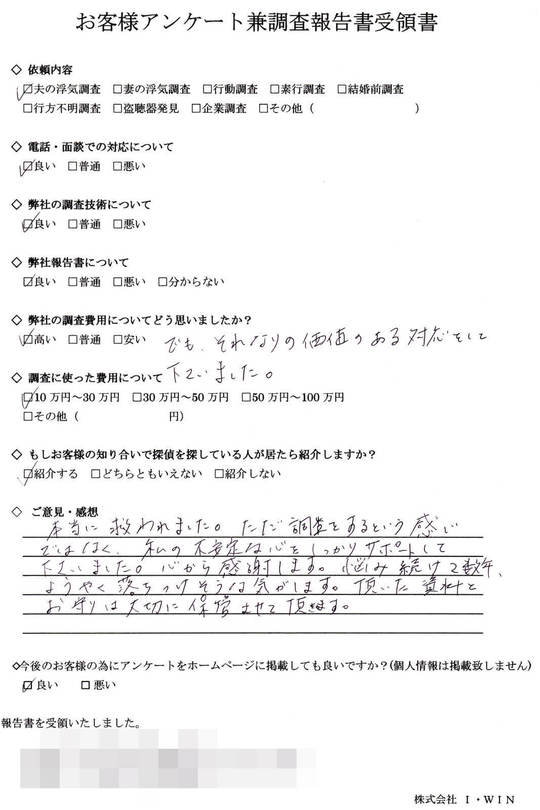 お客様アンケート兼調査報告書受領書
◇ 依頼内容
☑夫の浮気調査 □妻の浮気調査 □行動調査 □素行調査 □結婚前調査
□行方不明調査 □盗聴器発見 □企業調査 □その他（　　　　　　）
◇ 電話・面談での対応について
☑良い □普通 □悪い
◇ 弊社の調査技術について
☑良い □普通 □悪い
◇ 弊社報告書について
☑良い □普通 □悪い □分からない
◇ 弊社の調査費用についてどう思いましたか？
☑高い □普通 □安い でも、それなりの価値のある対応をして
下さいました。
◇ 調査に使った費用について
☑10万円～30万円 □30万円～50万円 □50万円～100万円
□その他（　　　　　　円）
◇ もしお客様の知り合いで探偵を探している人が居たら紹介しますか？
☑紹介する □どちらともいえない □紹介しない
◇ ご意見・感想
本当に救われました。ただ調査をするという感じ
ではなく、私の不安定な心をしっかりサポートして
下さいました。心から感謝します。悩み続けて数年、
ようやく落ちつけそうな気がします。頂いた資料と
お守りは大切に保管させて頂きます。
◇今後のお客様の為にアンケートをホームページに掲載しても良いですか？(個人情報は掲載致しません)
☑良い □悪い
報告書を受領いたしました。
株式会社 Ｉ・ＷＩＮ